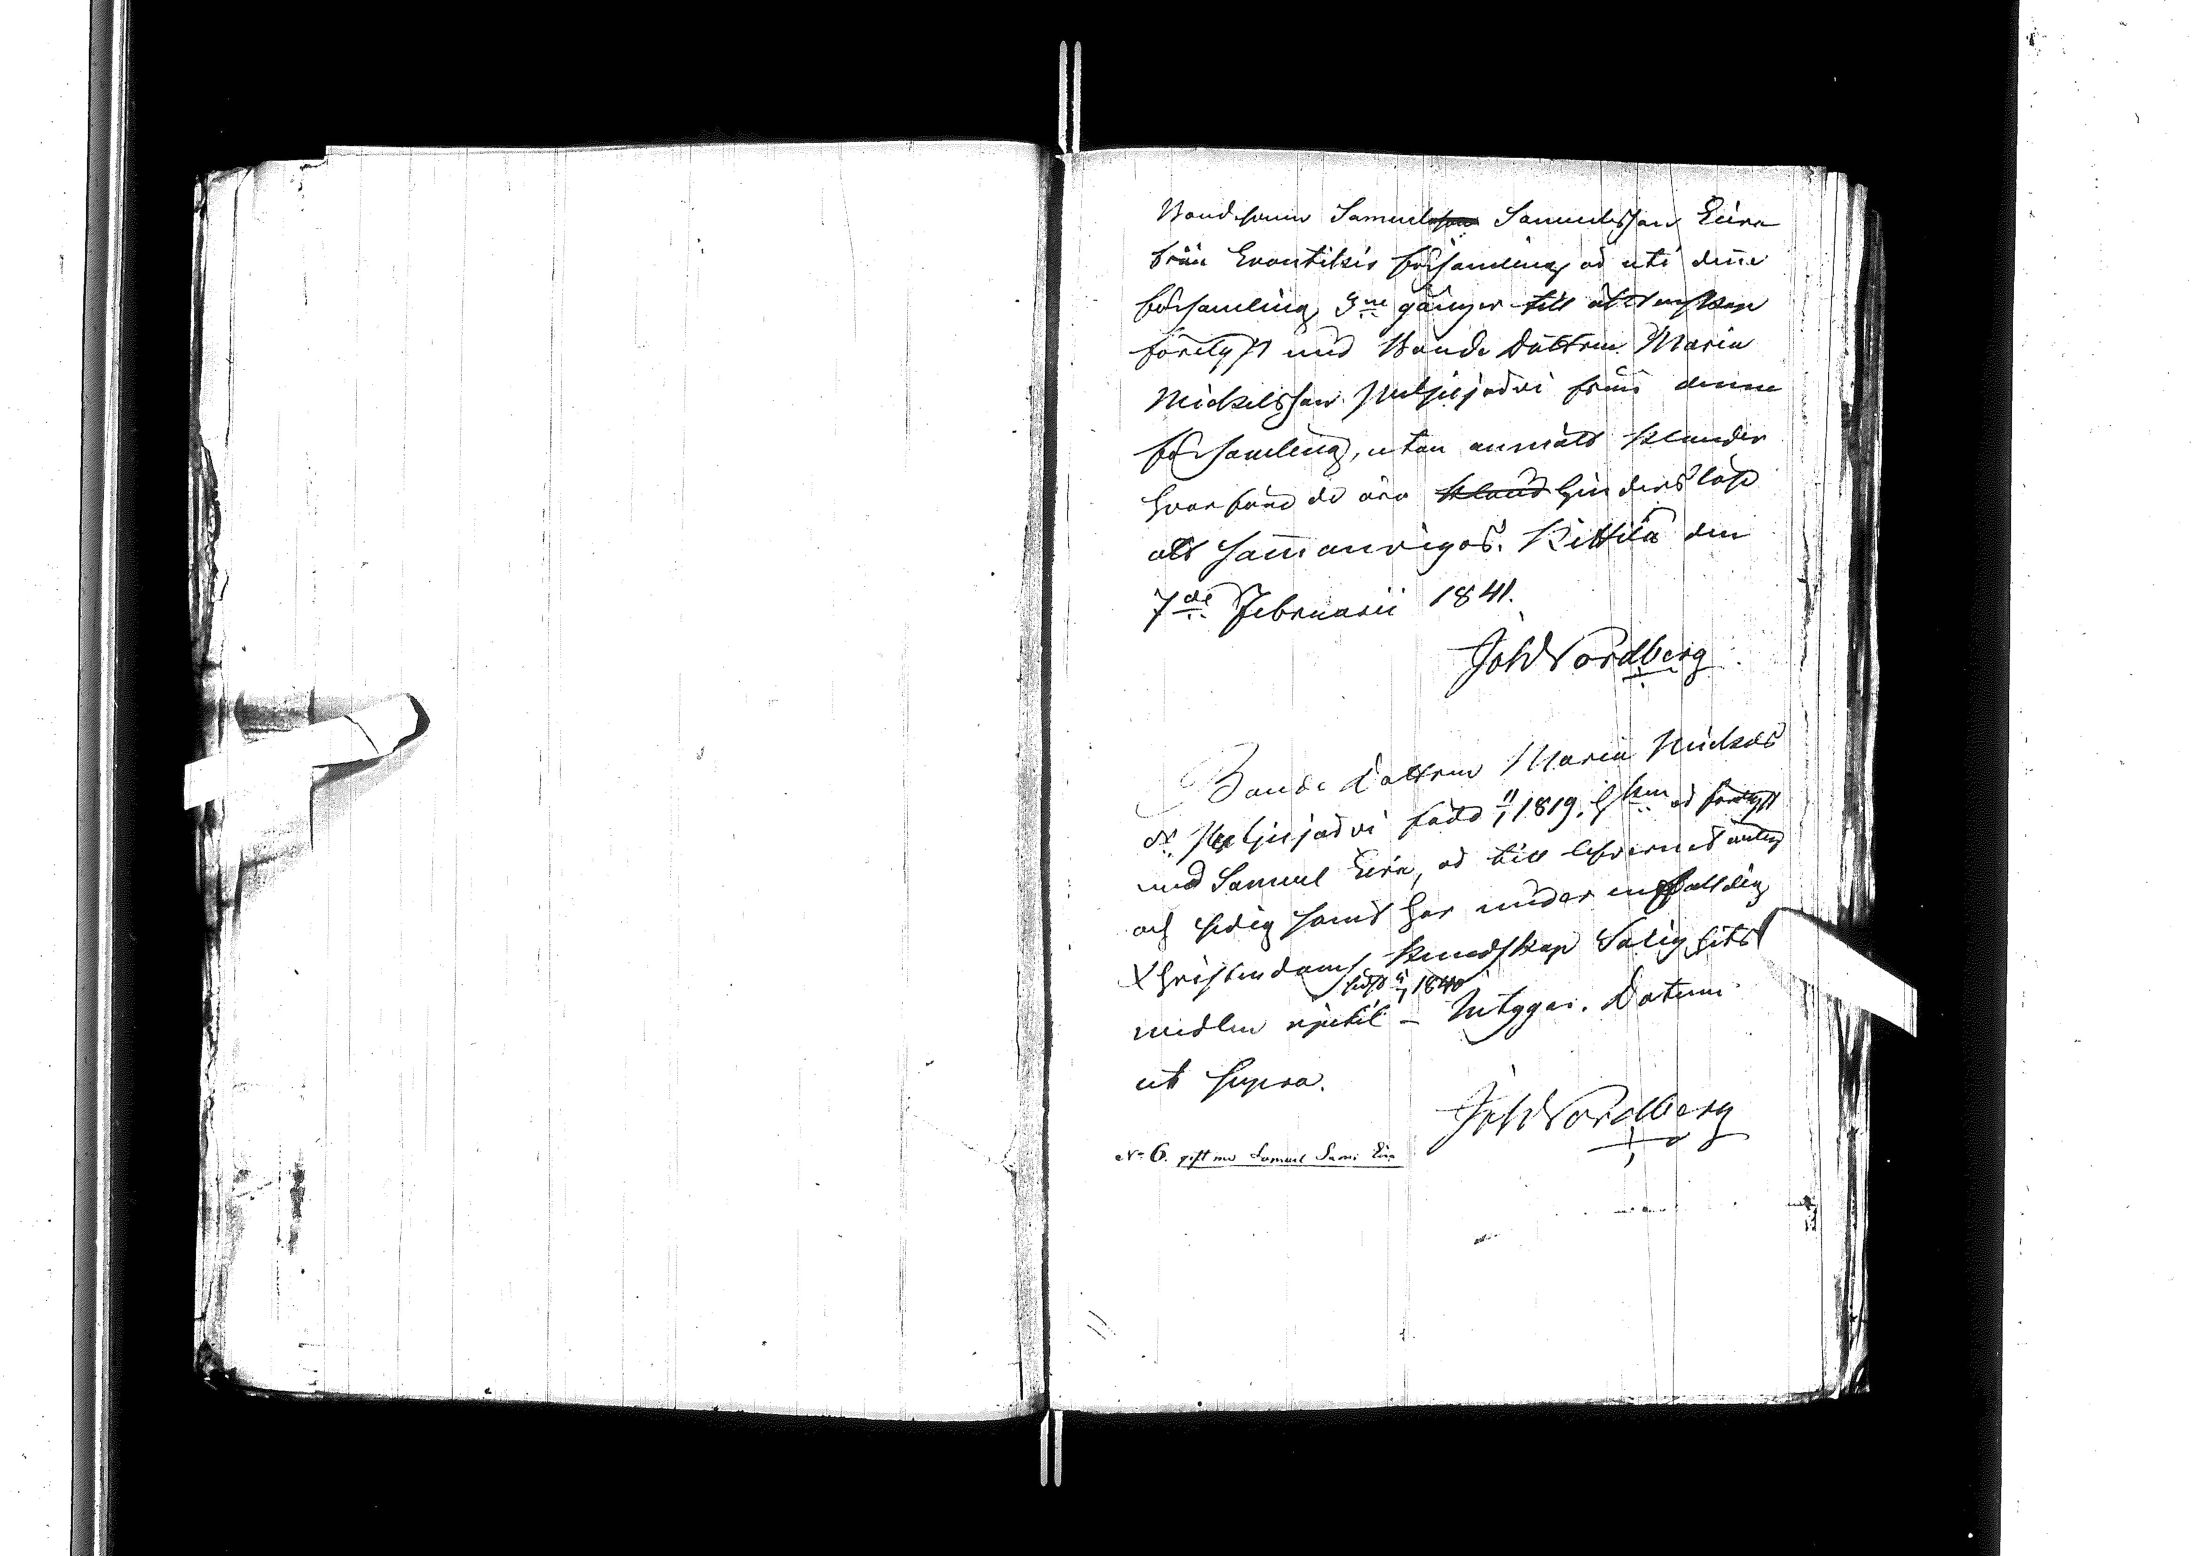 Bondesonen Samuelsson Samuelsson Eira
från Enontekis församling är uti denne
församling 3ne gånger till äktenskap
förelyst med Bonde Dottren Maria
Mickelsson Puljujärvi från denne
församling, utan anmält klander
hvarföre de äro kland hinderslöse
att sammanvigas. Kittilä den
7de Februarii 1841.
Joh Nordberg
Bonde Dottren Maria Mickels
dr. Puljujärvi född 11/1 1819, är förelyst
med Samuel Eira, är till lefvernet ärlig
och sedig samt har under enfaldig
Christendoms kundskap Salighets
medlen njutit sidst 1/7 1840 – Intygar. Datum
ut supra.
Joh Nordberg
No 6. gift med Samuel Sams Eira